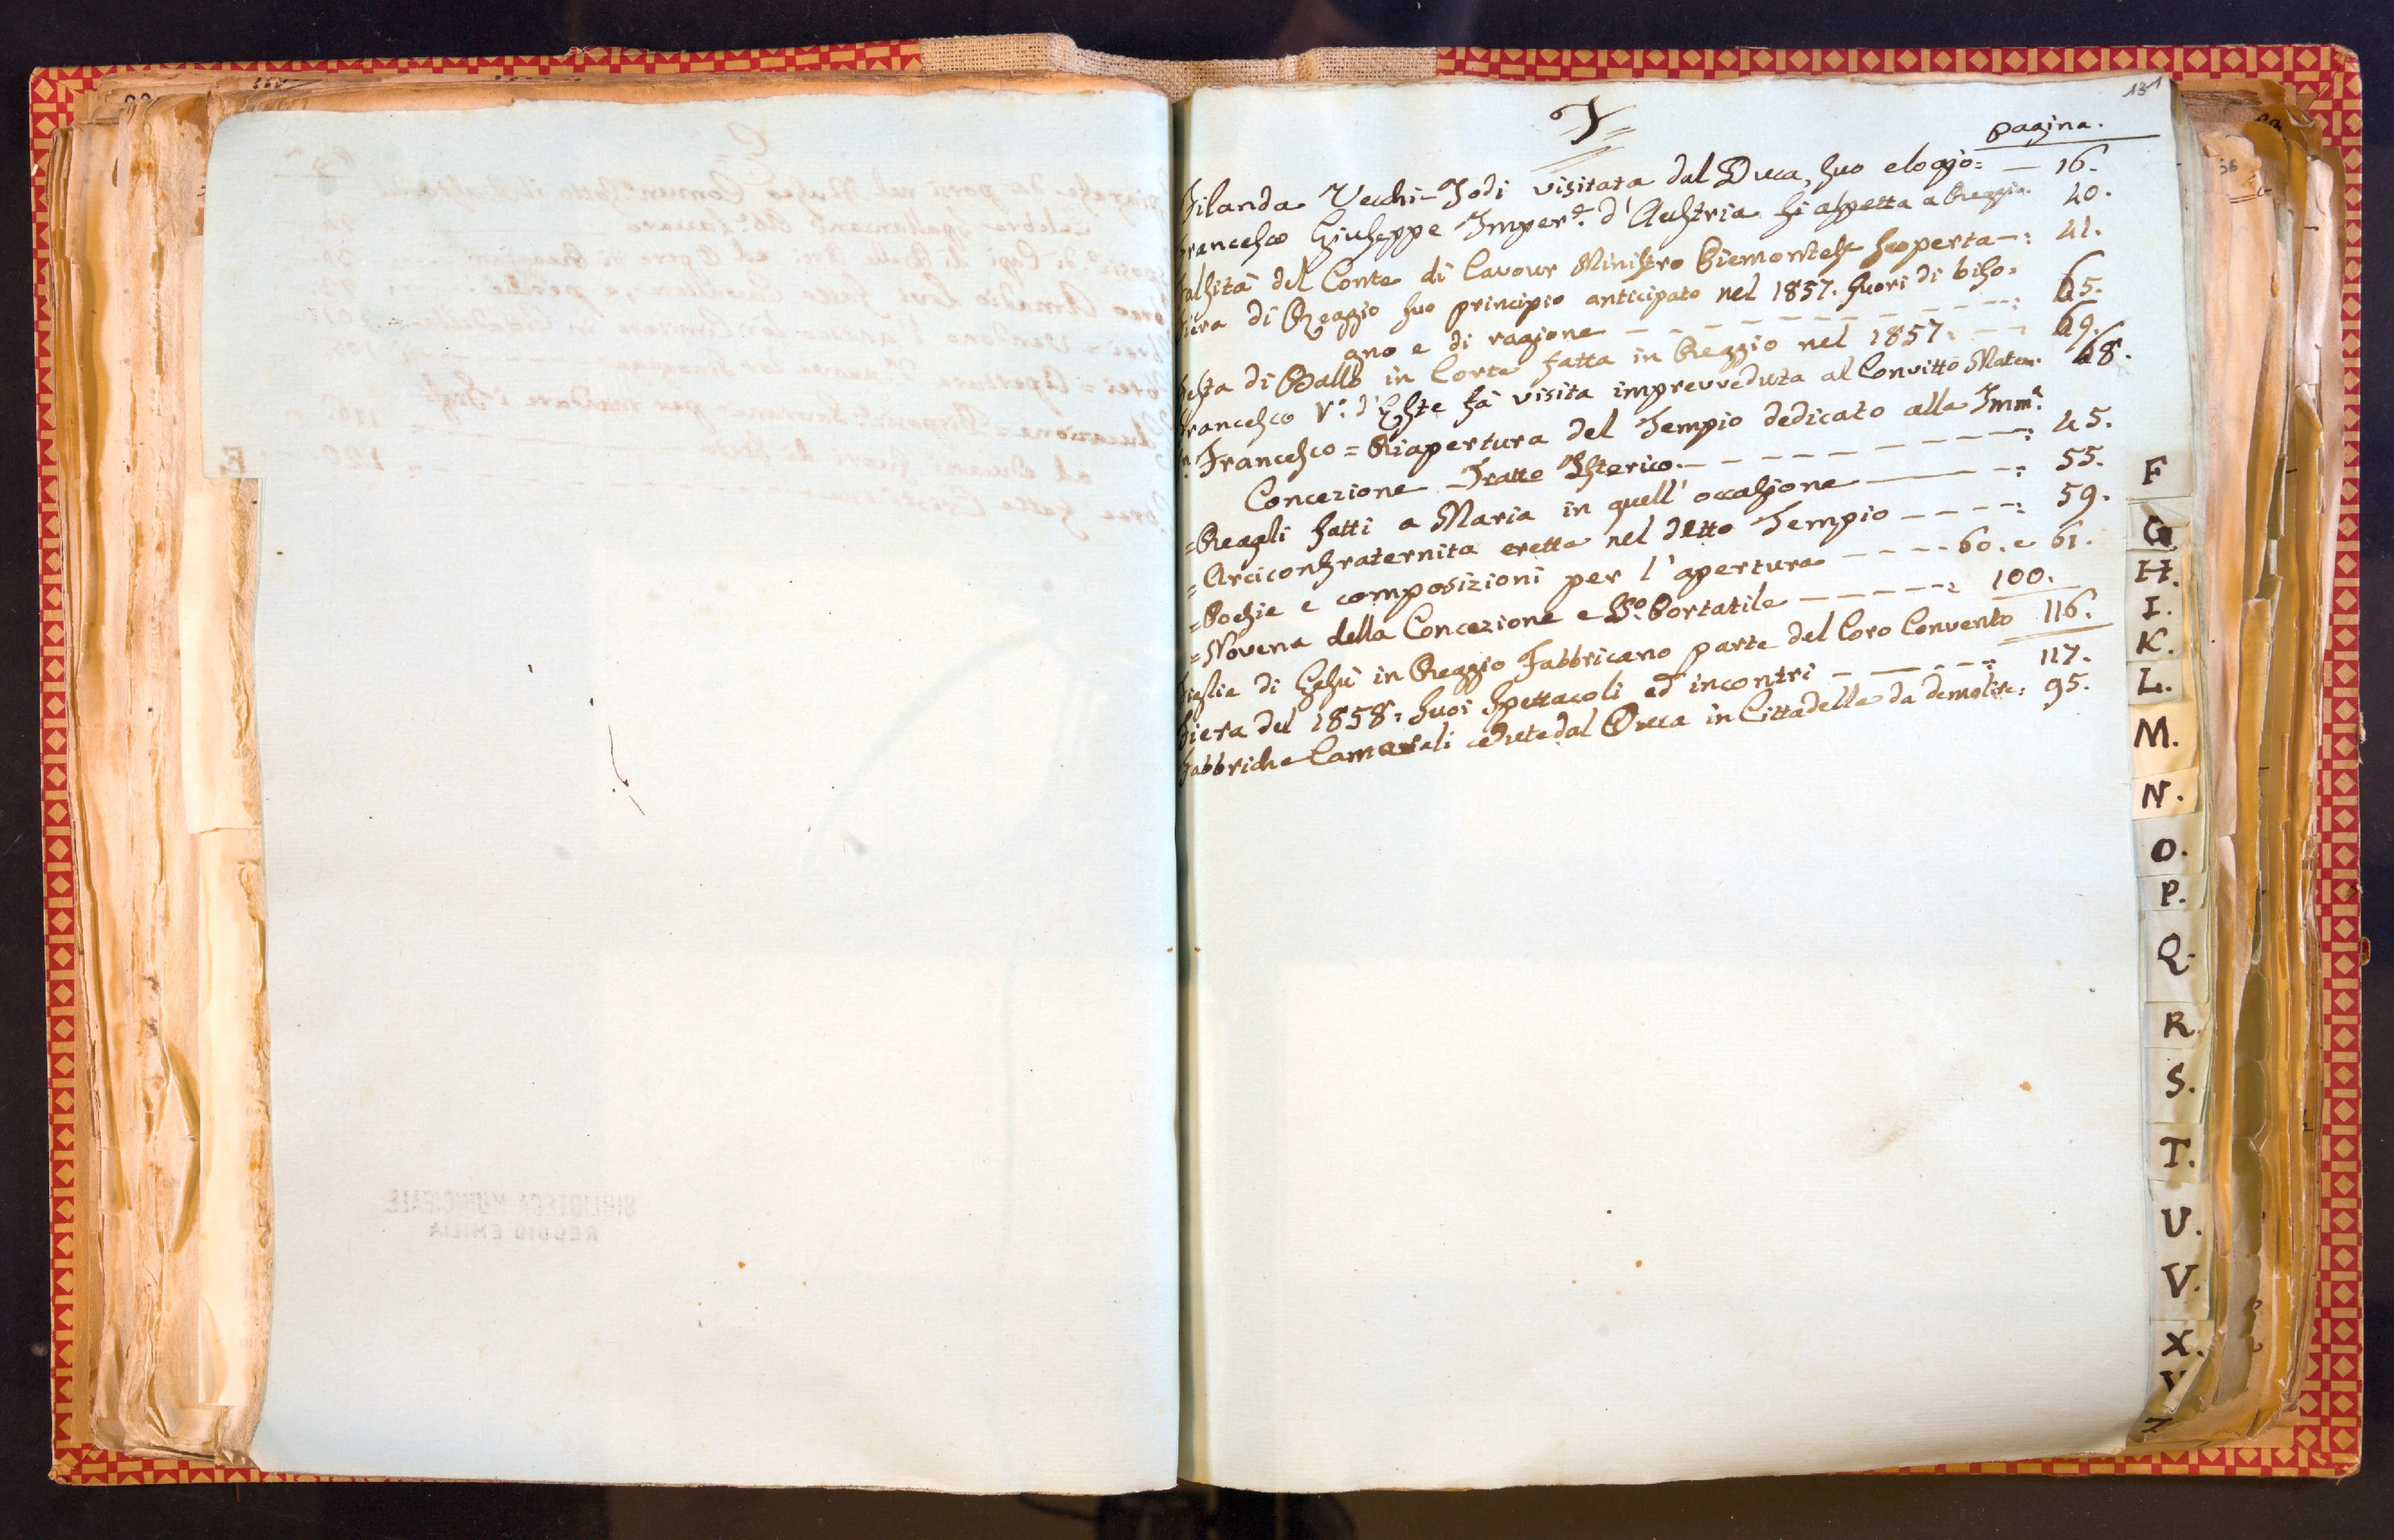 131
F
pagina.
Filanda Vecchi-Jodi visitata dal Duca, suo elogio= — 16.
Francesco Giuseppe Imper.e d'Austria si aspetta a Reggio. 40.
Falsità del Conte di Cavour Ministro Piemontese scoperta —: 41.
Fiera di Reggio suo principio anticipato nel 1857. fuori di biso=
gno e di ragione — — — — — — — — —: 65.
Festa di Ballo in Corte fatta in Reggio nel 1857: — —: 69.
Francesco V.o d'Este fà visita improvveduta al Convitto Matem. 68.
Francesco = Riapertura del Tempio dedicato alla Imm.a
Concezione - Tratto Isterico. — — — — — — — —: 45.
= Regali fatti a Maria in quell'occasione — — —: 55.
= Arciconfraternita eretta nel detto Tempio — — — —: 59.
= Poesie e composizioni per l'apertura — — — — 60. e 61.
= Novena della Concezione e So. Portatile — — — — —: 100.
Figlie di Gesù in Reggio Fabbricano parte del loro Convento 116.
Fiera del 1858: suoi spettacoli ed incontri — — — —: 117.
Fabbriche Camerali cedute dal Duca in Cittadella da demolire: 95.
E.
F
G
H.
I.
K.
L.
M.
N.
O.
P.
Q.
R.
S.
T.
U.
V.
X.
BIBLIOTECA MUNICIPALE
REGGIO EMILIA